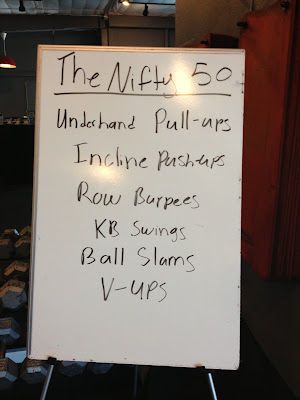 The Nifty 50
Underhand Pull-ups
Incline Push-ups
Row Burpees
KB Swings
Ball Slams
V-UPS